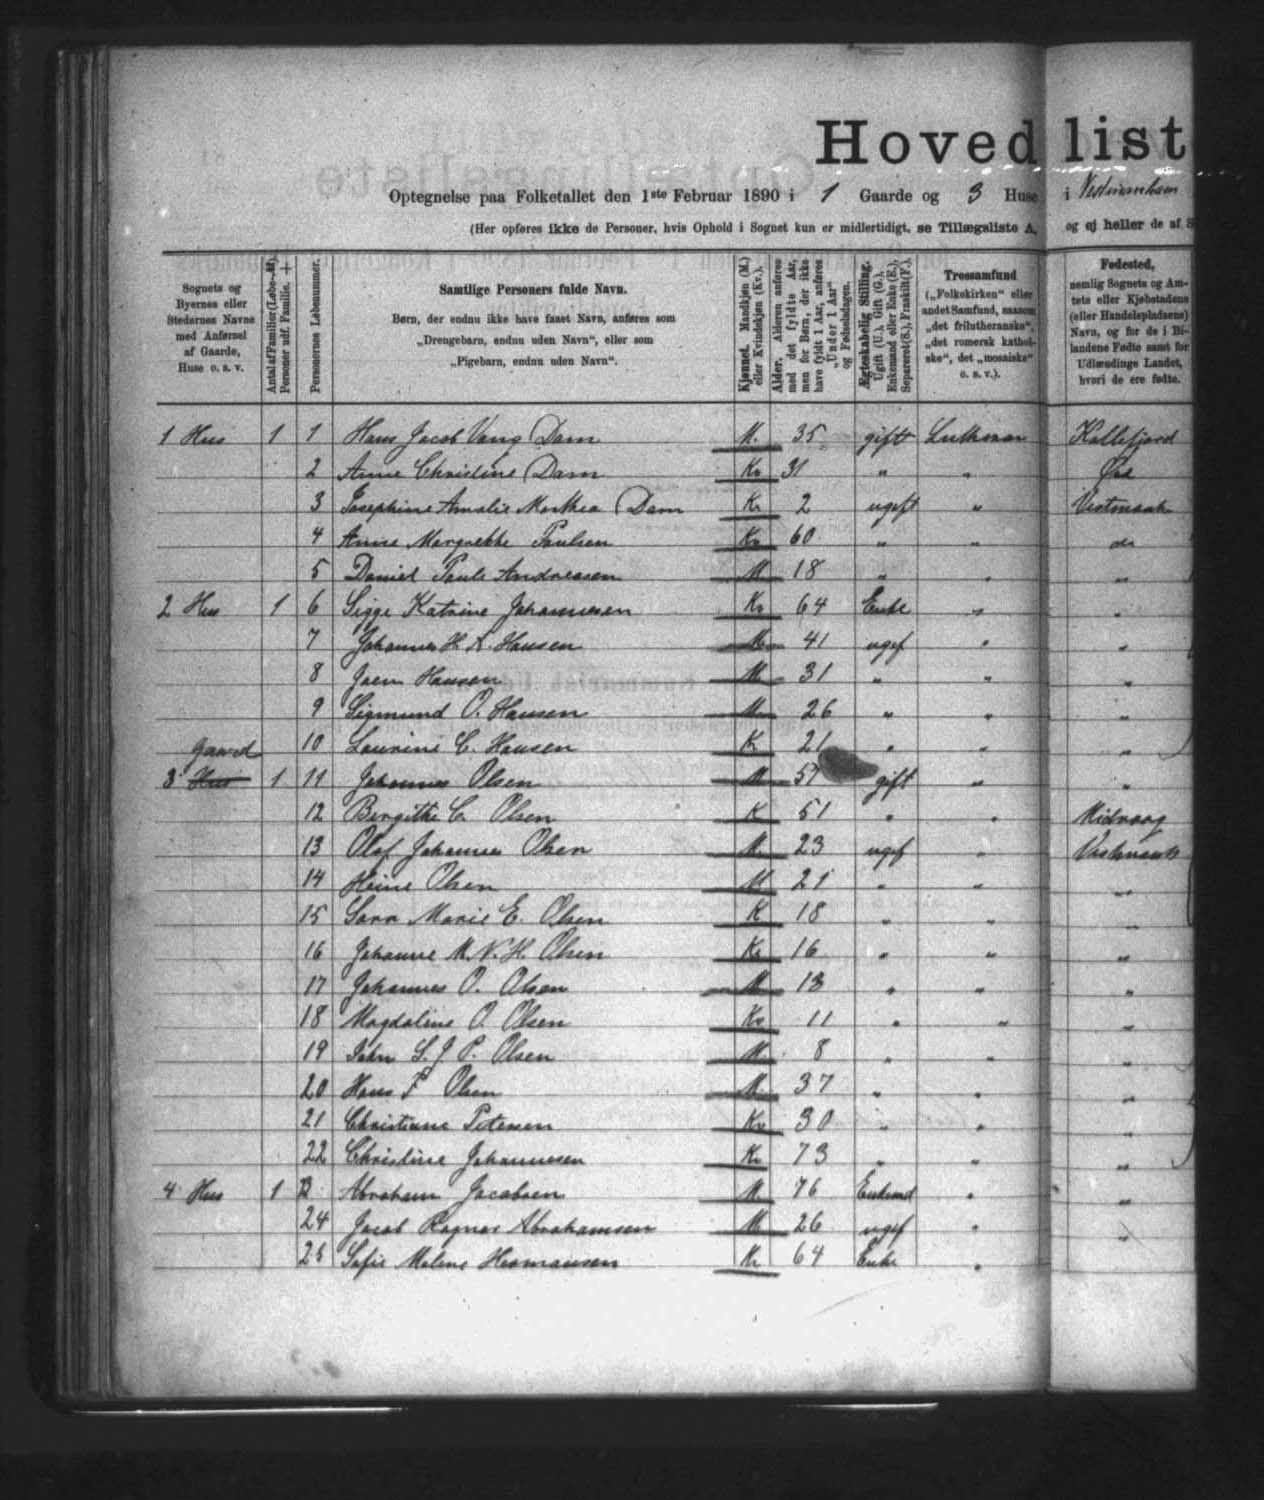 Hovedlist
Optegnelse paa Folketallet den 1ste Februar 1890 i 1 Gaarde og 3 Huse i Vestmanhavn
(Her opføres ikke de Personer, hvis Ophold i Sognet kun er midlertidigt, se Tillægsliste A, og ej heller de af S
Sognets og Byernes eller Stedernes Navne med Anførsel af Gaarde, Huse o. s. v.
Antal af Familier (Løbe-№). Personer udf. Familie. +
Personernes Løbenummer.
Samtlige Personers fulde Navn.
Børn, der endnu ikke have faaet Navn, anføres som
„Drengebarn, endnu uden Navn“, eller som
„Pigebarn, endnu uden Navn“.
Kjønnet. Mandkjøn (M.) eller Kvindekjøn (Kv.).
Alder. Alderen anføres med det fyldte Aar, men for Børn, der ikke have fyldt 1 Aar, anføres „Under 1 Aar“ og Fødselsdagen.
Ægteskabelig Stilling. Ugift (U.), Gift (G.), Enkemand eller Enke (E.), Separeret (S.), Fraskilt (F.).
Trossamfund („Folkekirken“ eller andet Samfund, saasom „det frilutheranske“, „det romersk katholske“, det „mosaiske“ o. s. v.).
Fødested, nemlig Sognets og Amtets eller Kjøbstadens (eller Handelspladsens) Navn, og for de i Bilandene Fødte samt for Udlændinge Landet, hvori de ere fødte.
1 Hus 1 1 Hans Jacob Vang Dam M. 35 gift Lutheran Kollefjord
2 Anne Christine Dam Kv 31 „ „
3 Josephine Amalie Marthea Dam Kv 2 ugift „ Vestmanh
4 Anne Margrethe Poulsen Kv 60 „ „ do
5 Daniel Pauli Andreasen M 18 „ „ „
2 Hus 1 6 Sigge Katrine Johannesen Kv 64 Enke „ „
7 Johannes H. K. Hansen M 41 ugif „ „
8 Joen Hansen M 31 „ „ „
9 Sigmund O. Hansen M 26 „ „ „
10 Laurine C. Hansen K 21 „ „ „
Gaard
3 Hus 1 11 Johannes Olsen M 57 gift „ „
12 Bergithe C. Olsen K 51 „ „ Midvaag
13 Olaf Johannes Olsen M. 23 ugif „ Vestmanh
14 Heine Olsen M 21 „ „ „
15 Sara Marie E. Olsen K 18 „ „ „
16 Johanne M. N. H. Olsen Kv 16 „ „ „
17 Johannes O. Olsen M 13 „ „ „
18 Magdaline O. Olsen Kv 11 „ „ „
19 John S. J P. Olsen M. 8 „ „ „
20 Hans F Olsen M. 37 „ „ „
21 Christiane Petersen Kv 30 „ „ „
22 Christine Johannesen Kv 73 „ „ „
4 Hus 1 23 Abraham Jacobsen M 76 Enkemd „ „
24 Jacob Ragnar Abrahamsen M 26 ugif „ „
25 Sofie Malene Hermansen Kv 64 Enke „